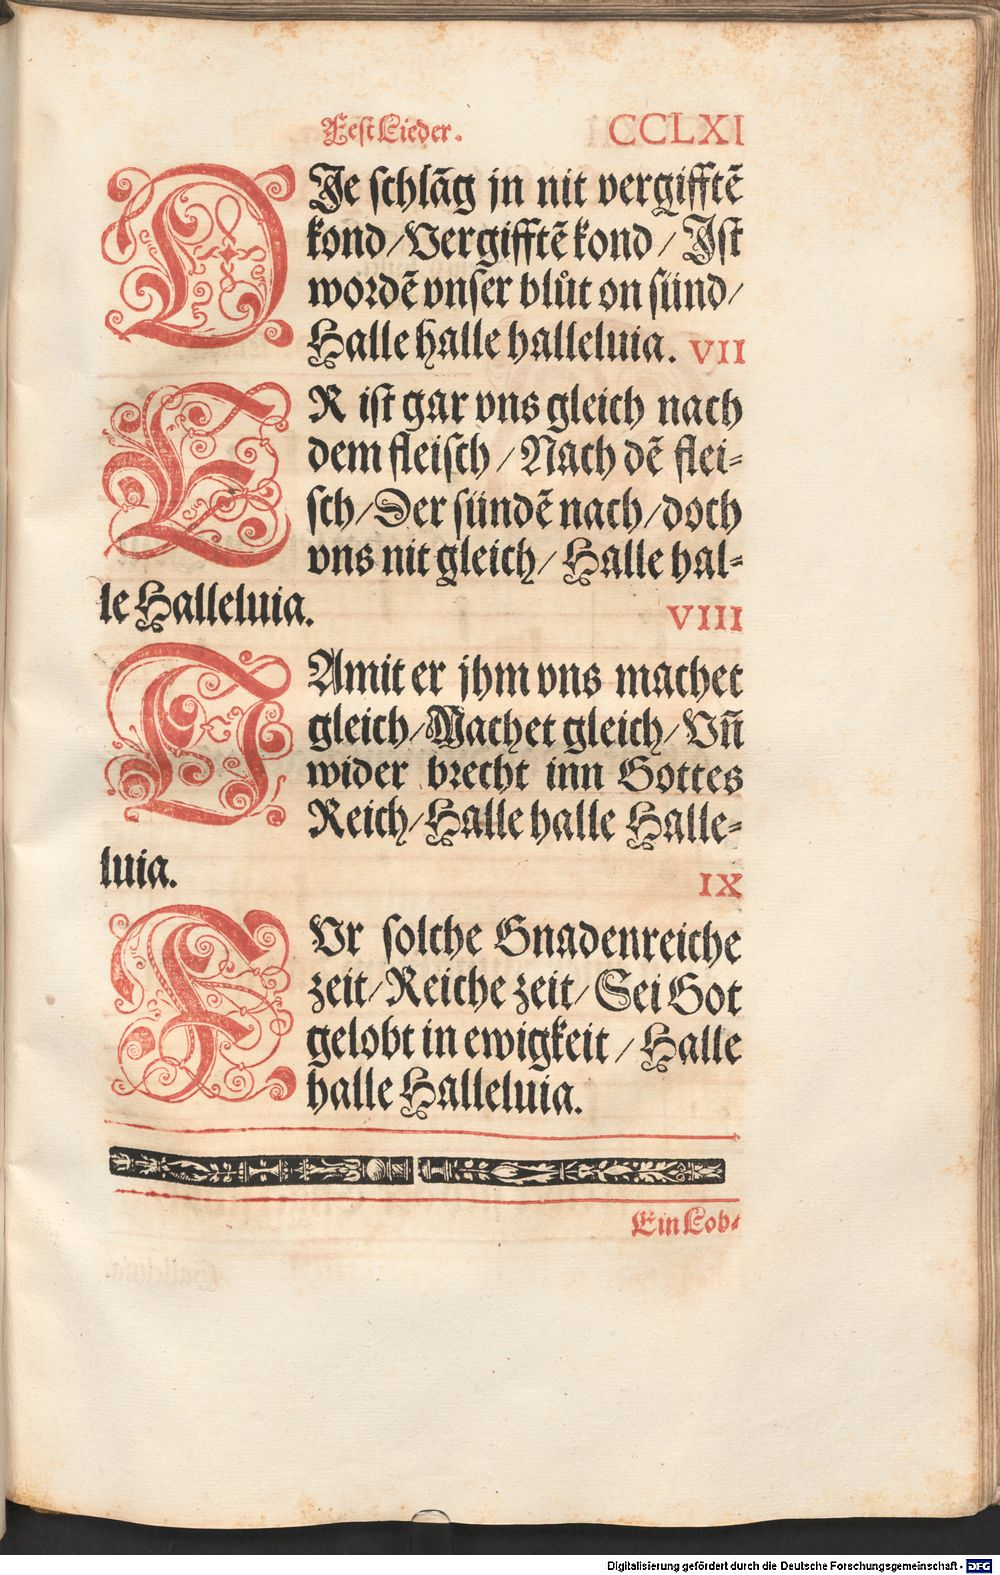 Fest Lieder. CCLXI
DJe schlãg jn nit vergifftẽ
kond / Vergifftẽ kond / Jst
wordẽ vnser blůt on sünd /
Halle halle halleluia. VII
ER ist gar vns gleich nach
dem fleisch / Nach dẽ flei=
sch / Der sündẽ nach / doch
vns nit gleich / Halle hal=
le Halleluia. VIII
DAmit er jhm vns machet
gleich / Machet gleich / Vñ
wider brecht inn Gottes
Reich / Halle halle Halle=
luia. IX
FVr solche Gnadenreiche
zeit / Reiche zeit / Sei Got
gelobt in ewigkeit / Halle
halle Halleluia.
Ein Lob=
Digitalisierung gefördert durch die Deutsche Forschungsgemeinschaft - DFG